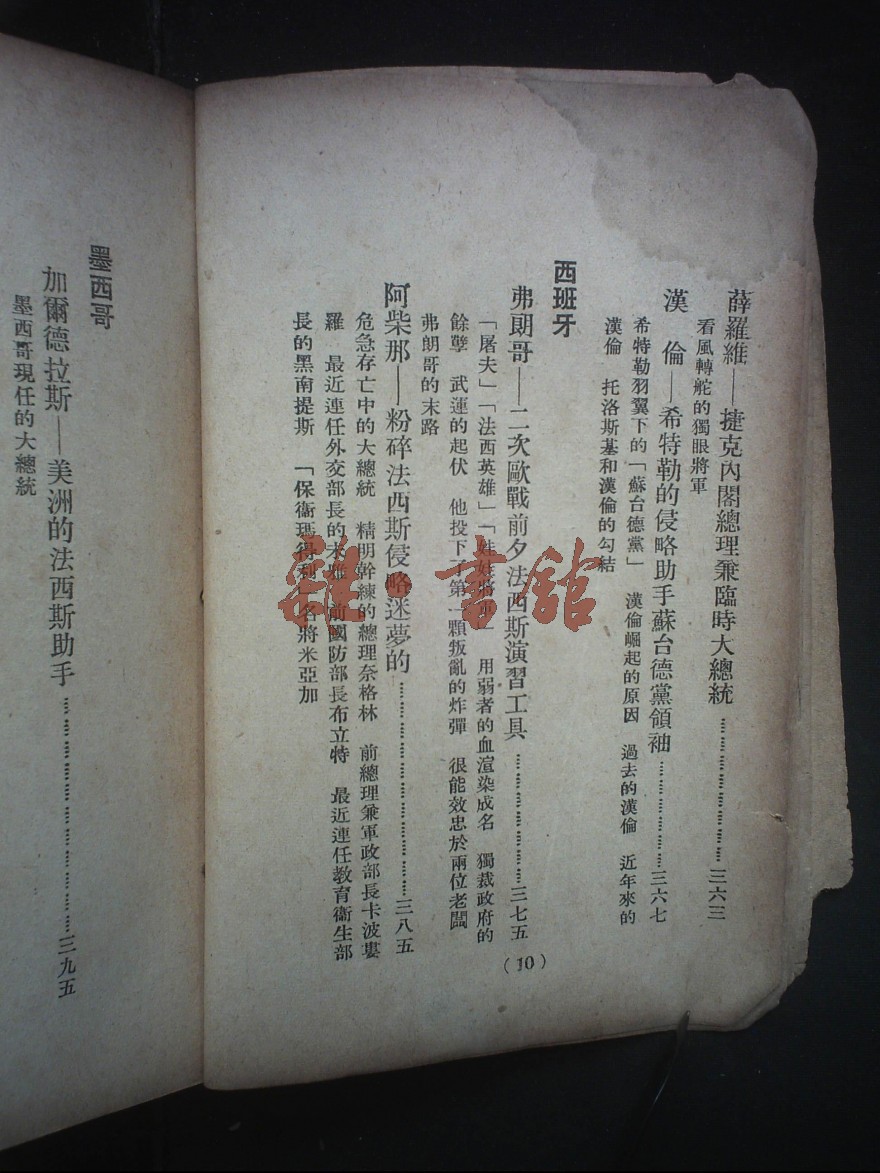 薛羅維——捷克內閣總理兼臨時大總統……三六三
看風轉舵的獨眼將軍
漢　倫——希特勒的侵略助手蘇台德黨領袖……三六七
希特勒羽翼下的「蘇台德黨」　漢倫崛起的原因　過去的漢倫　近年來的
漢倫　托洛斯基和漢倫的勾結
西班牙
弗朗哥——二次歐戰前夕法西斯演習工具……三七五
「屠夫」「法西英雄」「娃娃將軍」　用弱者的血渲染成名　獨裁政府的
餘孽　武運的起伏　他投下了第一顆叛亂的炸彈　很能效忠於兩位老闆
弗朗哥的末路
阿柴那——粉碎法西斯侵略迷夢的……三八五
危急存亡中的大總統　精明幹練的總理奈格林　前總理兼軍政部長卡波婁
羅　最近連任外交部長的未雖　前國防部長布立特　最近連任教育衞生部
長的黑南提斯　「保衞瑪得利」名將米亞加
(10)
墨西哥
加爾德拉斯——美洲的法西斯助手……三九五
墨西哥現任的大總統
雜·書館